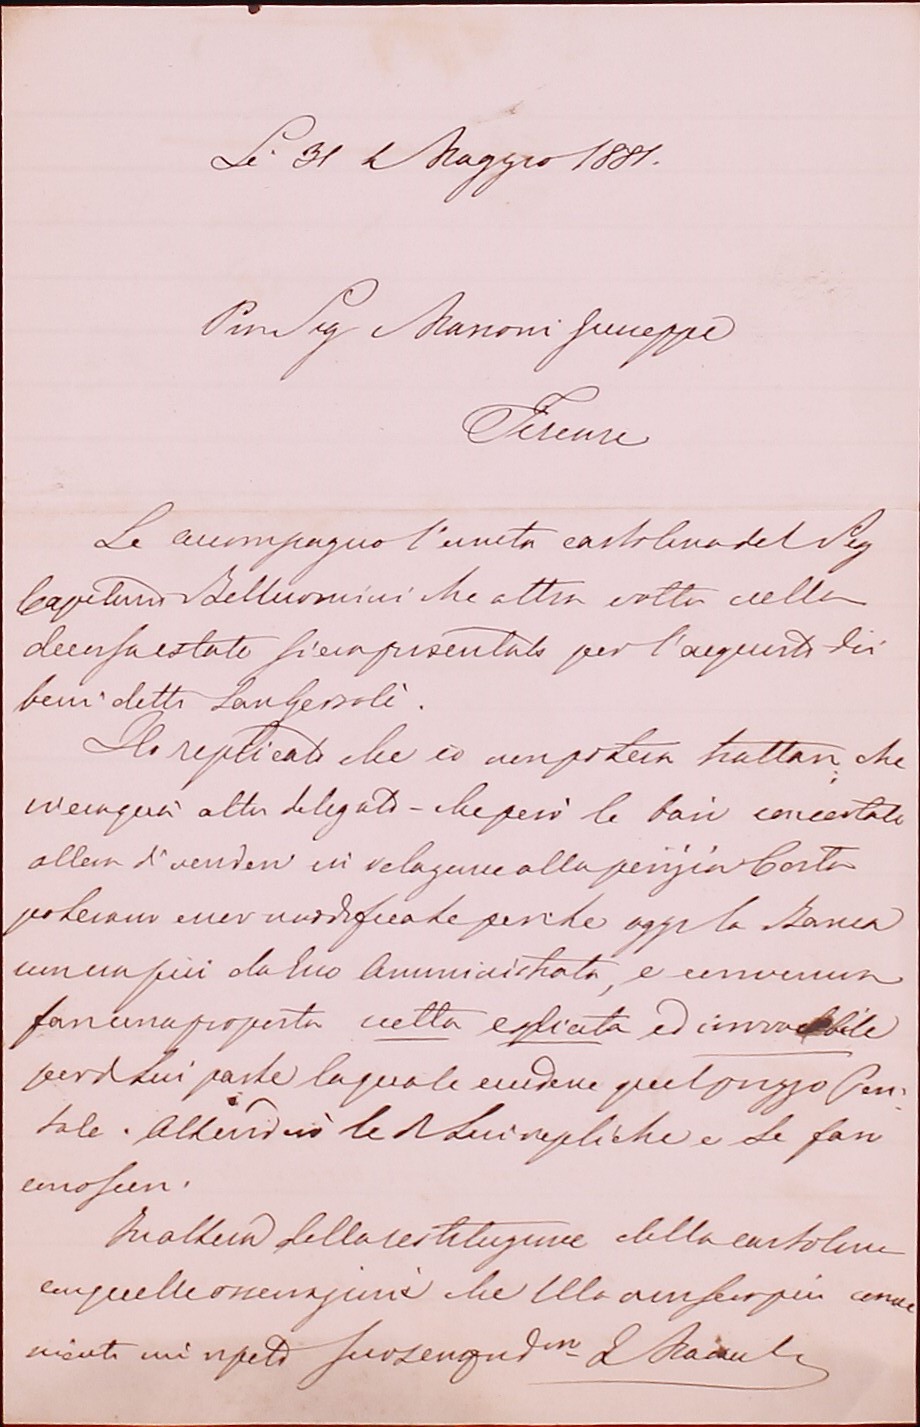 Li 31 di Maggio 1881.
Pm Sig Mansoni Giuseppe
Firenze
Le accompagno l'unita cartolina del Sig
Capitano Belluomini che altra volta nella
decorsa estate si era presentato per l'acquisto dei
beni detti Sangervolè.
Ho replicato che io non poteva trattare, che
vi era qua altro delegato - che però le basi concertate
allora di vendere in relazione alla perizia Costa
potevano esser modificate perche oggi la Banca
non era più da Essa Amministrata, e conveniva
fare una proposta netta esplicita ed irrevocabile
per di Lui parte la quale ci
quel prezzo
tale. Attenderò le di Lui repliche e le farò
conoscere.
In attesa della restituzione della cartolina
con quelle osservazioni che Ella conserva più conve
niente mi ripeto Suo